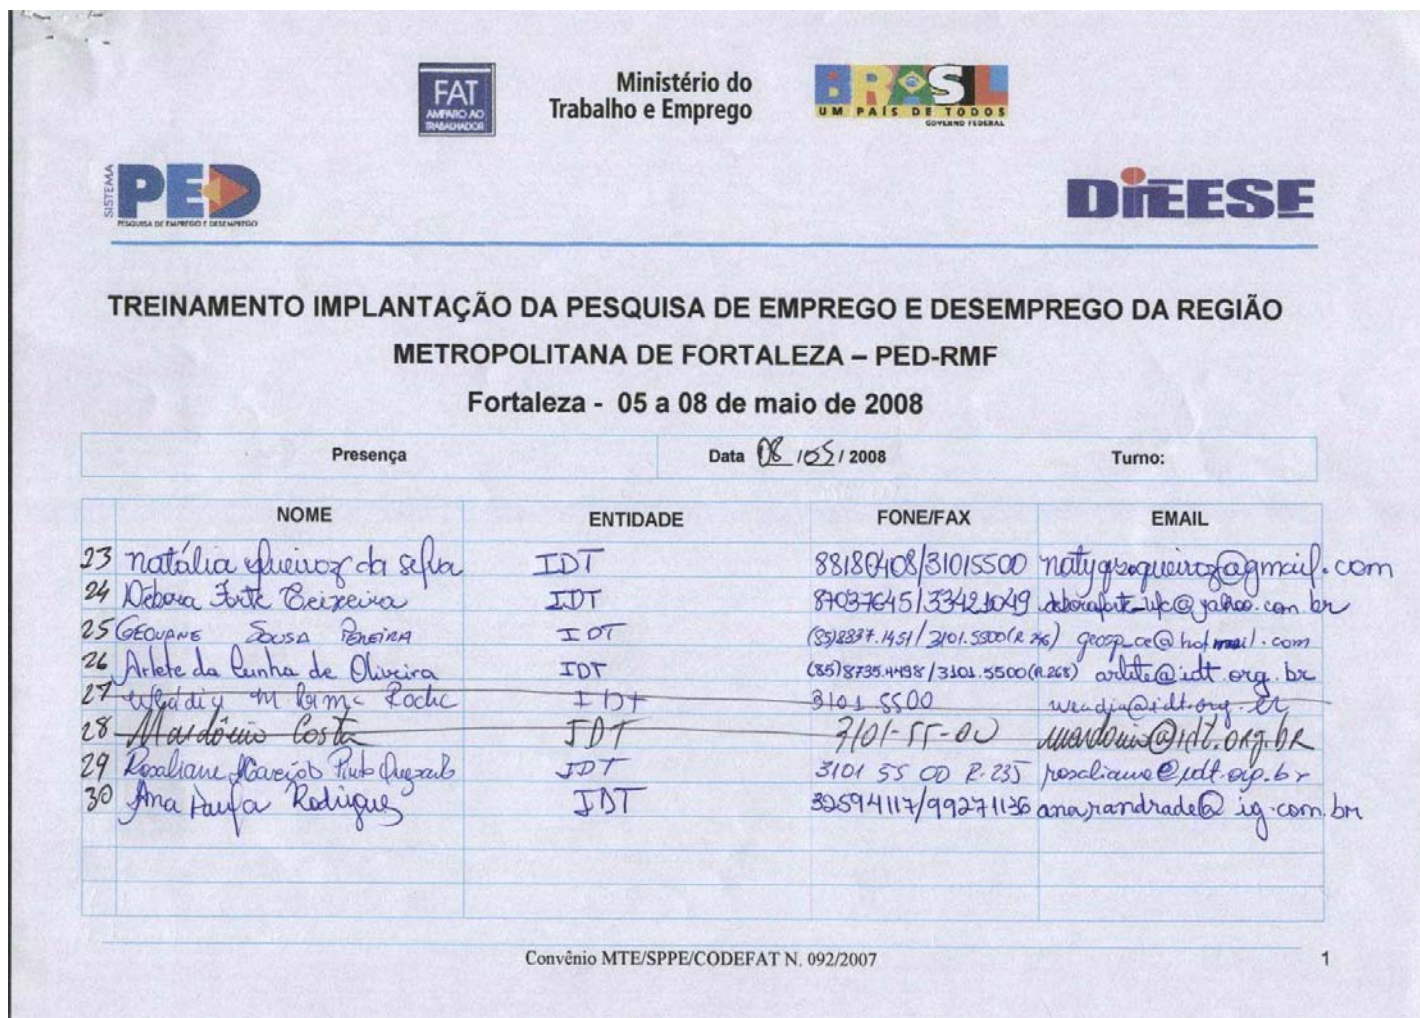 FAT
AMPARO AO
TRABALHADOR
Ministério do
Trabalho e Emprego
BRASIL
UM PAÍS DE TODOS
GOVERNO FEDERAL
SISTEMA
PED
PESQUISA DE EMPREGO E DESEMPREGO
DIEESE
TREINAMENTO IMPLANTAÇÃO DA PESQUISA DE EMPREGO E DESEMPREGO DA REGIÃO
METROPOLITANA DE FORTALEZA – PED-RMF
Fortaleza - 05 a 08 de maio de 2008
Presença Data 08 /05/ 2008 Turno:
NOME ENTIDADE FONE/FAX EMAIL
23 Natália Queiroz da Silva IDT 88180408/31015500
24 Débora Forte Teixeira IDT 87037645/33421049
25 GEOVANE SOUSA PEREIRA IDT (85)8837.1451/3101.5500(R.246) geosp_ce@hotmail.com
26 Arlete da Cunha de Oliveira IDT (85)8735.4498/3101.5500(R.268) arlete@idt.org.br
27 IDT 3101 5500
28 Mardônio Costa IDT 3101-55-00 mardonio@idt.org.br
29 Rosaliane IDT 3101 55 00 R.235 rosaliane@idt.org.br
30 Ana Paula Rodrigues IDT 32594117/99271136 anarandrade@ig.com.br
Convênio MTE/SPPE/CODEFAT N. 092/2007 1